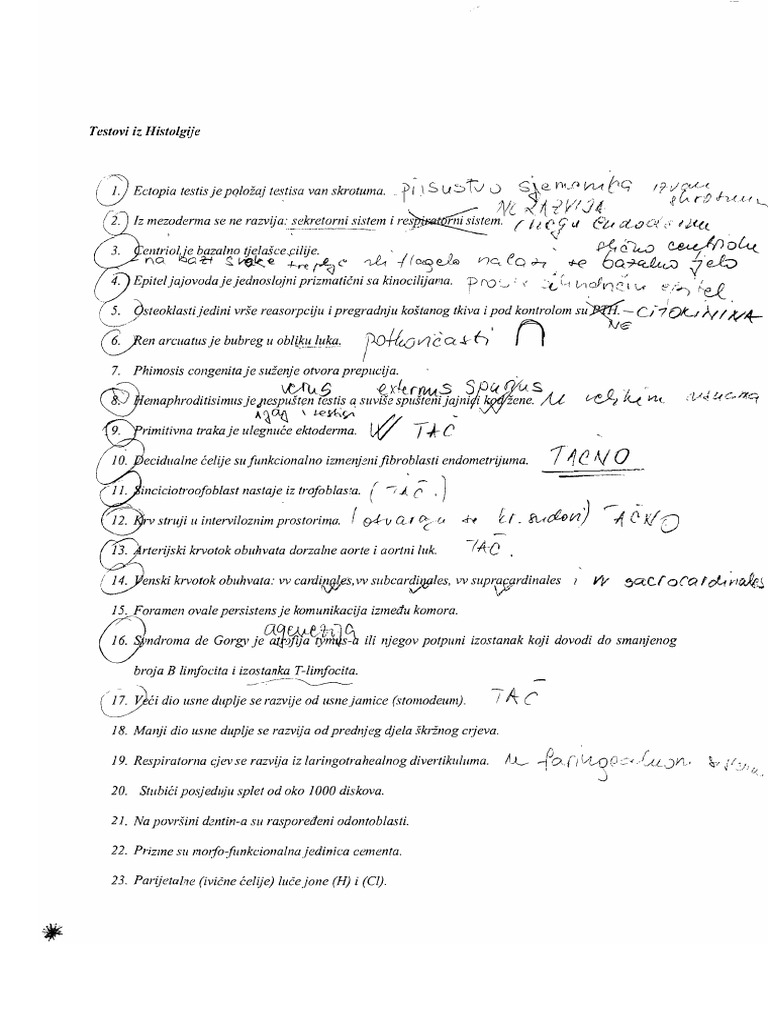 Testovi iz Histolgije
1. Ectopia testis je položaj testisa van skrotuma. prisustvo sjemenika izvan skrotuma
NE RAZVIJA
2. Iz mezoderma se ne razvija: sekretorni sistem i respiratorni sistem. (nego endoderma
slično centriolu
3. Centriol je bazalno tjelašce cilije.
na bazi svake treplje ili flagele nalazi se bazalno tjelo
4. Epitel jajovoda je jednoslojni prizmatični sa kinocilijama. cilindrični epitel
5. Osteoklasti jedini vrše reasorpciju i pregradnju koštanog tkiva i pod kontrolom su PTH. - CITOKININA
NE
6. Ren arcuatus je bubreg u obliku luka. potkovičasti
7. Phimosis congenita je suženje otvora prepucija.
verus externus spurius
8. Hemaphroditisimus je nespušten testis a suviše spušteni jajnici kod žene.
i testisi
9. Primitivna traka je ulegnuće ektoderma. TAČ
10. Decidualne ćelije su funkcionalno izmenjeni fibroblasti endometrijuma. TAČNO
11. Sinciciotroofoblast nastaje iz trofoblasta. (TAČ.)
12. Krv struji u interviloznim prostorima. (otvaraju se kr. sudovi) TAČNO
13. Arterijski krvotok obuhvata dorzalne aorte i aortni luk. TAČ.
14. Venski krvotok obuhvata: vv cardinales, vv subcardinales, vv supracardinales i vv sacrocardinales
15. Foramen ovale persistens je komunikacija između komora.
agenezija
16. Syndroma de Gorgy je atrofija tymus-a ili njegov potpuni izostanak koji dovodi do smanjenog
broja B limfocita i izostanka T-limfocita.
17. Veći dio usne duplje se razvije od usne jamice (stomodeum). TAČ
18. Manji dio usne duplje se razvija od prednjeg djela škržnog crjeva.
19. Respiratorna cjev se razvija iz laringotrahealnog divertikuluma.
20. Stubići posjeduju splet od oko 1000 diskova.
21. Na površini dentin-a su raspoređeni odontoblasti.
22. Prizme su morfo-funkcionalna jedinica cementa.
23. Parijetalne (ivične ćelije) luče jone (H) i (Cl).